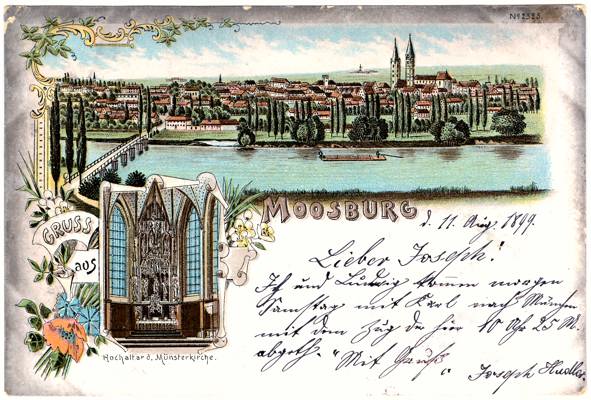 No 2525.
GRUSS
aus
MOOSBURG
Hochaltar d. Münsterkirche.
d. 11. Aug. 1899.
Lieber Joseph!
Ich und Ludwig kommen morgen
Samstag mit Karl nach München
mit dem Zug der hier 10 Uhr 25 M.
abgeht. "Mit Gruß"
Joseph Hudler